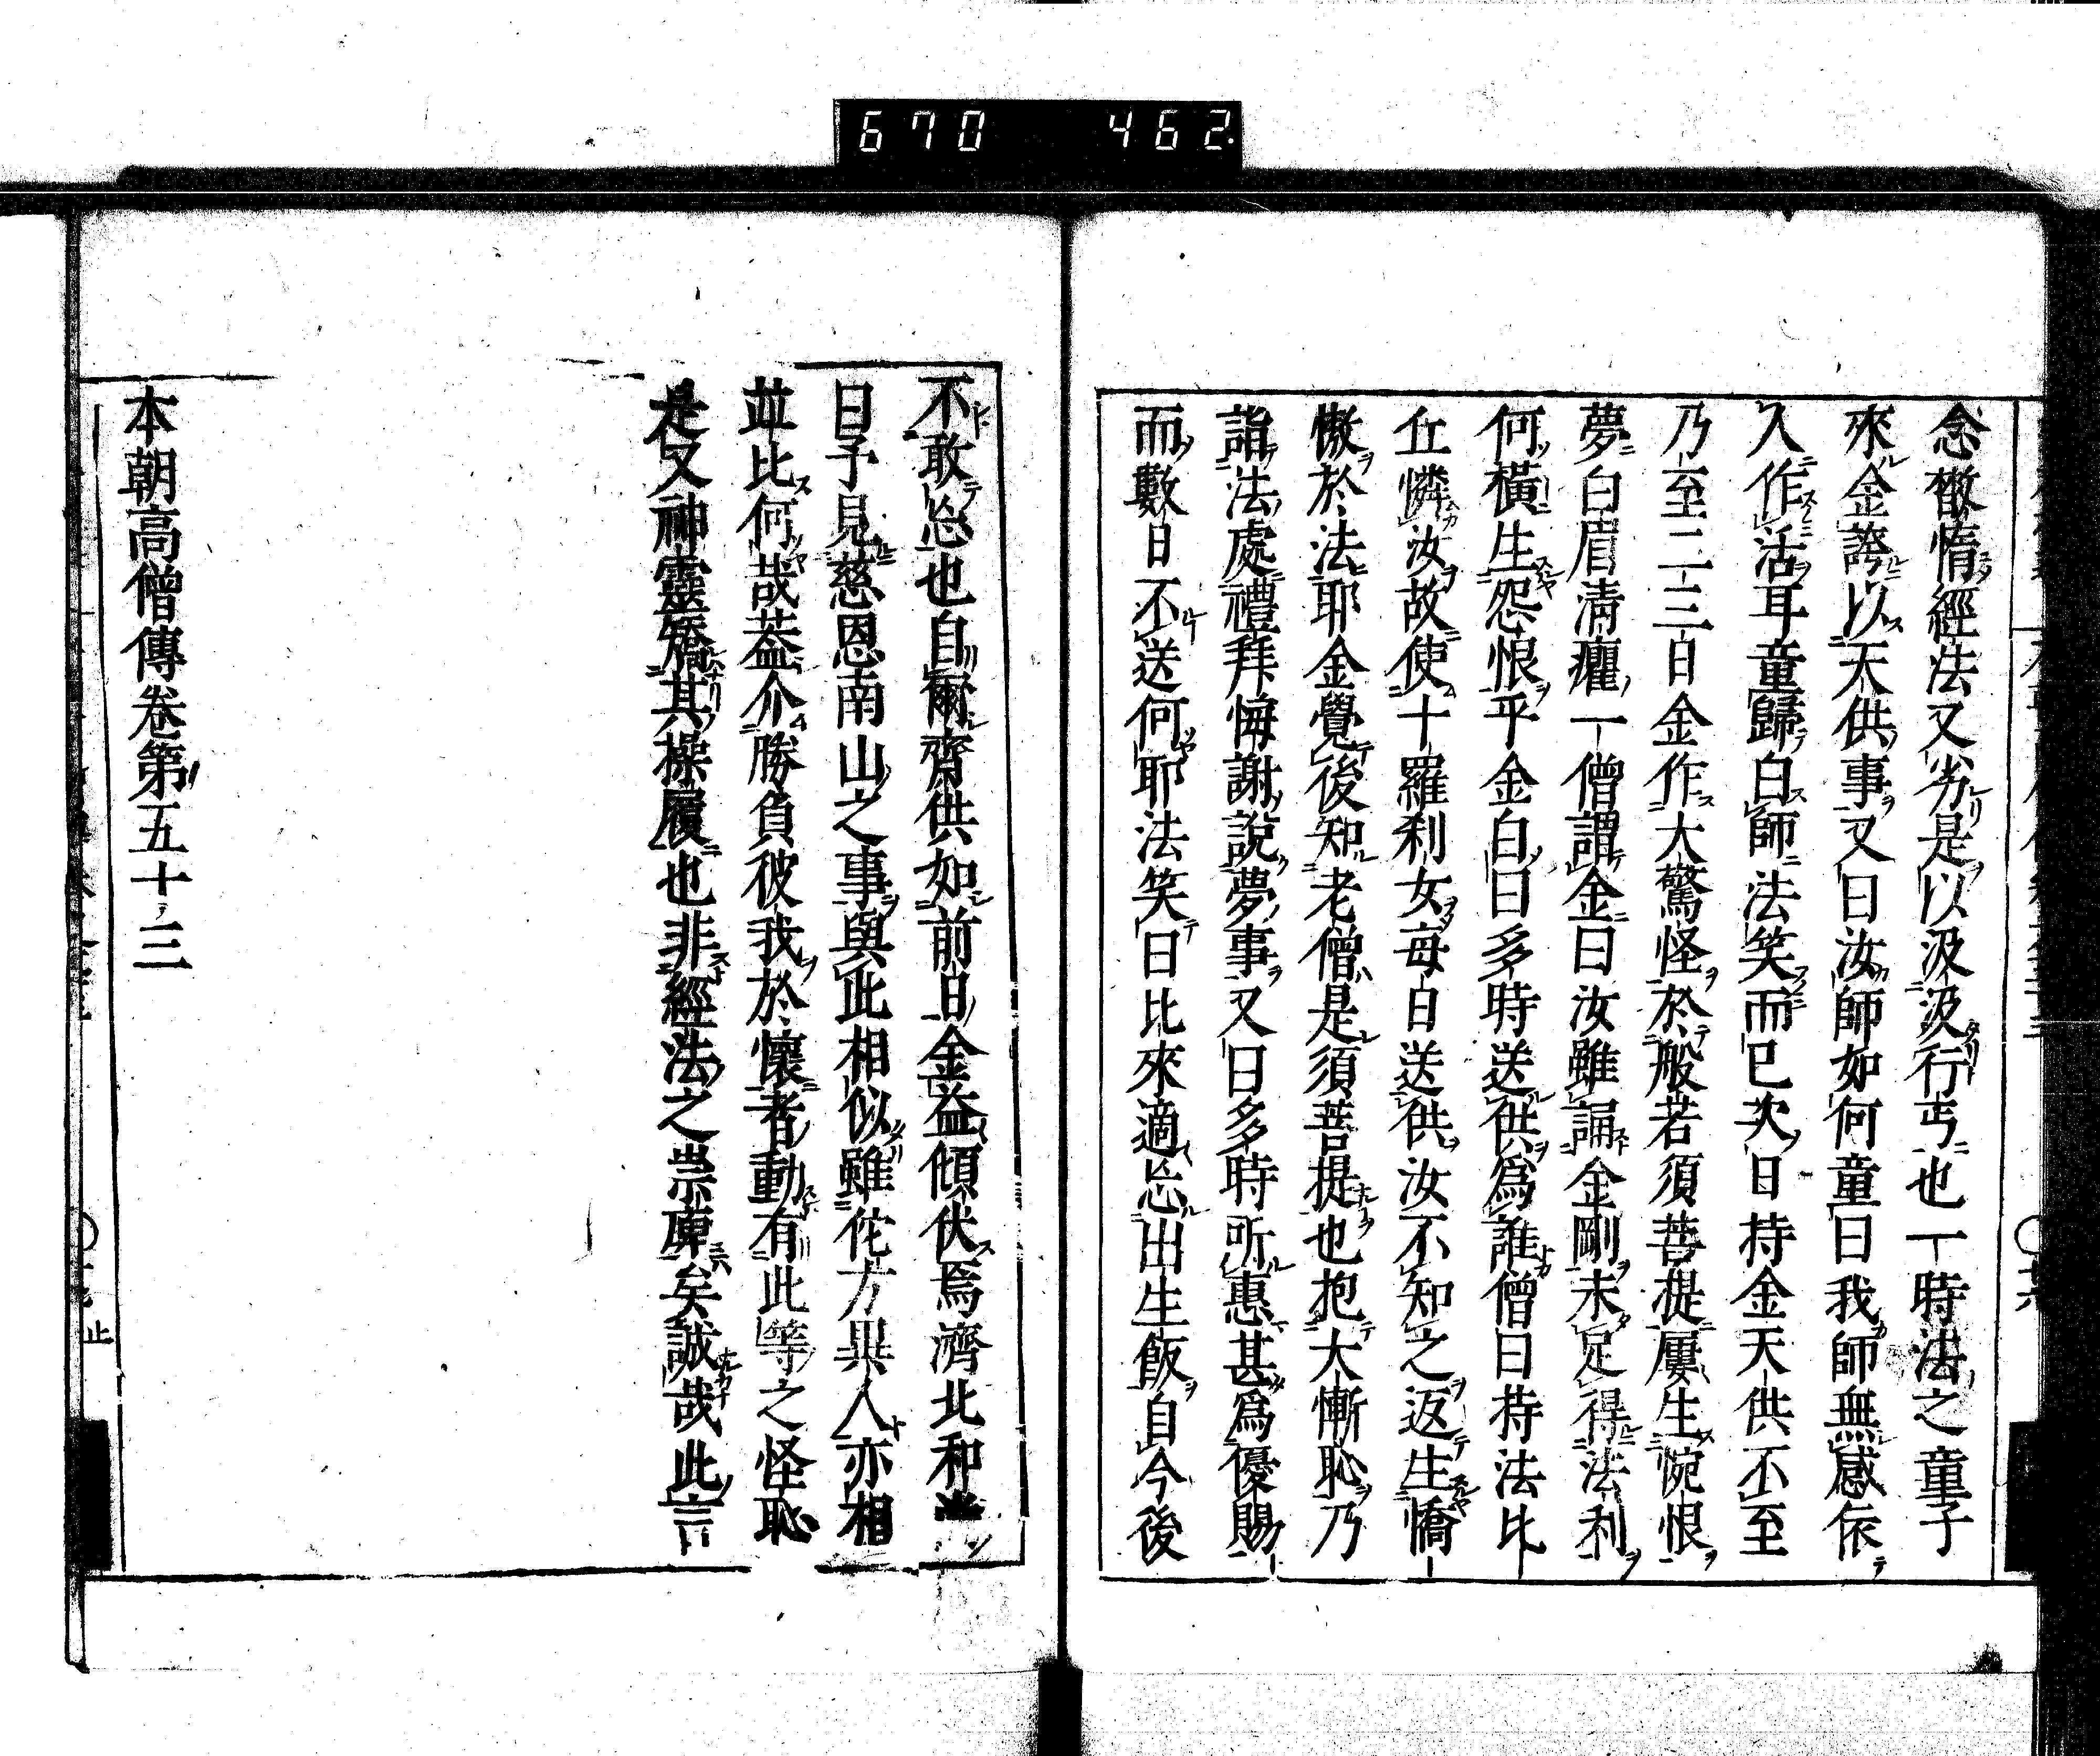 670 462
念憿惰經法又劣是以汲汲行丐也一時法之童子
來金誇以天供事又曰汝師如何童曰我師無感依
人作活耳童歸白師法笑而已次日持金天供不至
乃至二三日金作大驚怪於般若須菩提屢生惋恨
夢白眉清癯一僧謂金曰汝雖誦金剛未足得法利
何橫生怨恨乎金白曰多時送供爲誰僧曰持法比
丘憐汝故使十羅刹女每日送供汝不知之返生憍
慠於法耶金覺後知老僧是須菩提也抱大慚恥乃
詣法處禮拜悔謝說夢事又曰多時所惠甚爲優賜
而數日不送何耶法笑曰比來適忘出生飯自今後
不敢忘也自爾齋供如前日金益傾伏焉濟北和
曰予見慈恩南山之事與此相似雖佗方異人亦相
並比何哉蓋介勝負彼我於懷者動有此等之怪恥
是又神靈矯其操履也非經法之祟庳矣誠哉此言
本朝高僧傳卷第五十三
止